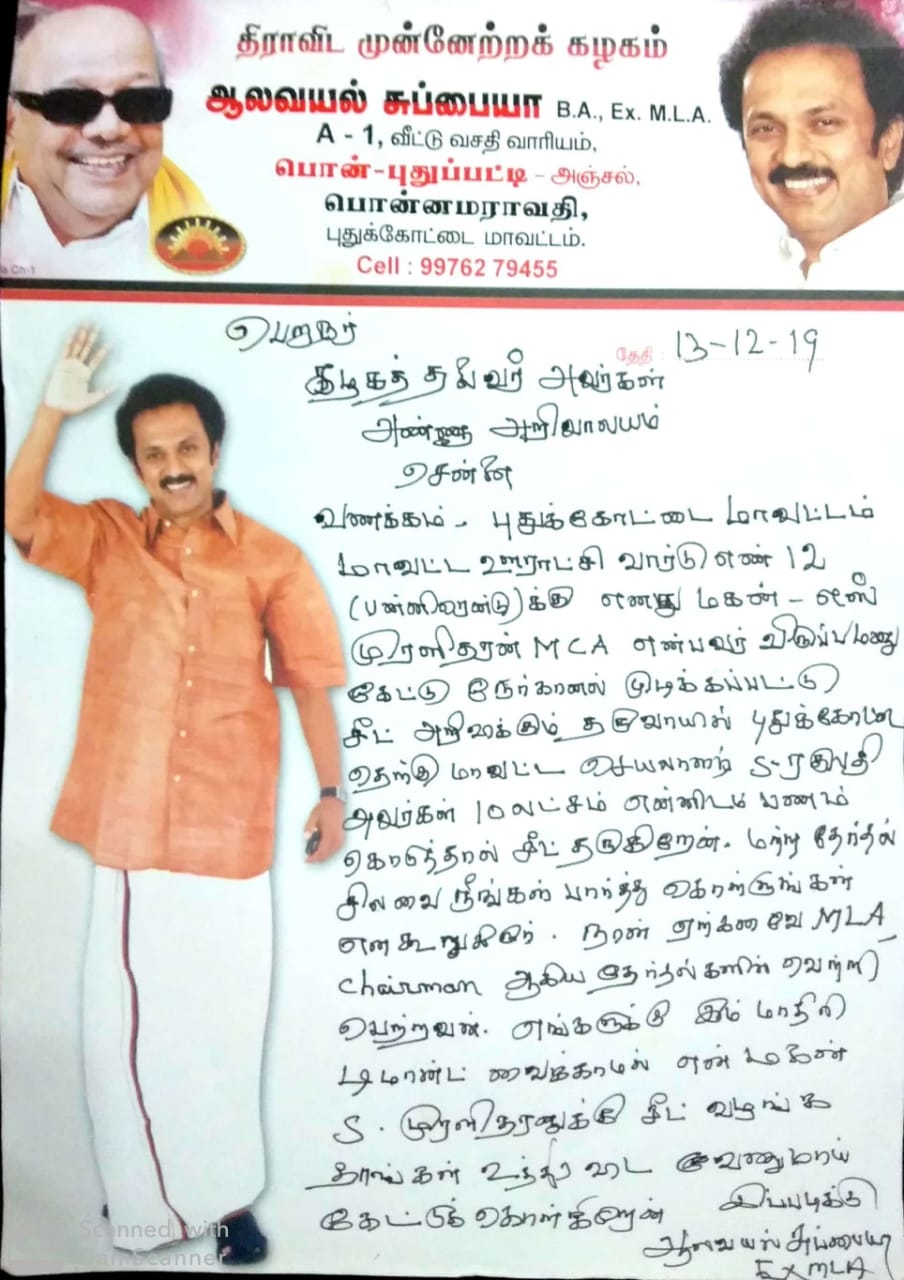 திராவிட முன்னேற்றக் கழகம்
ஆலவயல் சுப்பையா B.A., Ex. M.L.A.
A - 1, வீட்டு வசதி வாரியம்,
பொன்-புதுப்பட்டி - அஞ்சல்,
பொன்னமராவதி,
புதுக்கோட்டை மாவட்டம்.
Cell : 99762 79455
பெறுநர்
தேதி : 13-12-19
கழகத் தலைவர் அவர்கள்
அண்ணா அறிவாலயம்
சென்னை
வணக்கம். புதுக்கோட்டை மாவட்டம்
மாவட்ட ஊராட்சி வார்டு எண் 12
(பன்னிரெண்டு)க்கு எனது மகன் - எஸ்
முரளிதரன் MCA என்பவர் விருப்பமனு
கேட்டு நேர்காணல் முடிக்கப்பட்டு
சீட் அறிவிக்கும் தருவாயில் புதுக்கோட்டை
தெற்கு மாவட்ட செயலாளர் S-ரகுபதி
அவர்கள் 10 லட்சம் என்னிடம் பணம்
கொடுத்தால் சீட் தருகிறேன். மற்ற தேர்தல்
சிலவை நீங்கள் பார்த்து கொள்ளுங்கள்
என கூறுகிறார். நான் ஏற்கனவே MLA
Chairman ஆகிய தேர்தல்களில் வெற்றி
பெற்றவன். எங்களுக்கு இம் மாதிரி
டிமாண்ட் வைக்காமல் என் மகன்
S. முரளிதரனுக்கு சீட் வழங்க
தாங்கள் உத்திரவிட வேணுமாய்
கேட்டுக் கொள்கிறேன் இப்படிக்கு
ஆலவயல் சுப்பையா
Ex MLA
Scanned with
CamScanner